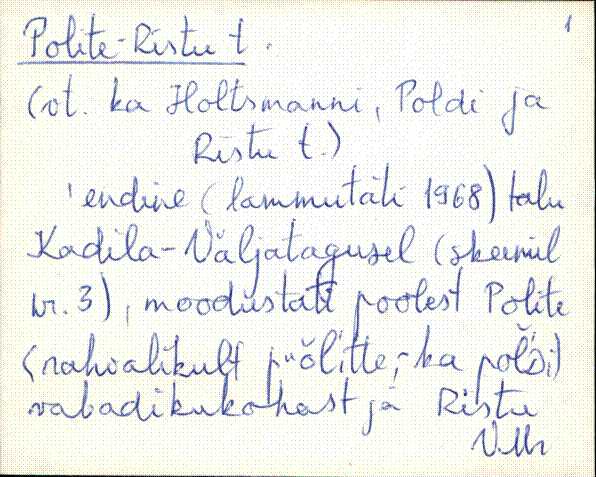 1
Polite-Ristu t.
(vt. ka Holtsmanni, Poldi ja
Ristu t.)
'endine (lammutati 1968) talu
Kadila-Väljatagusel (skeemil
nr. 3), moodustati poolest Polite
(rahvalikult ka
vabadikukohast ja Ristu
VMr